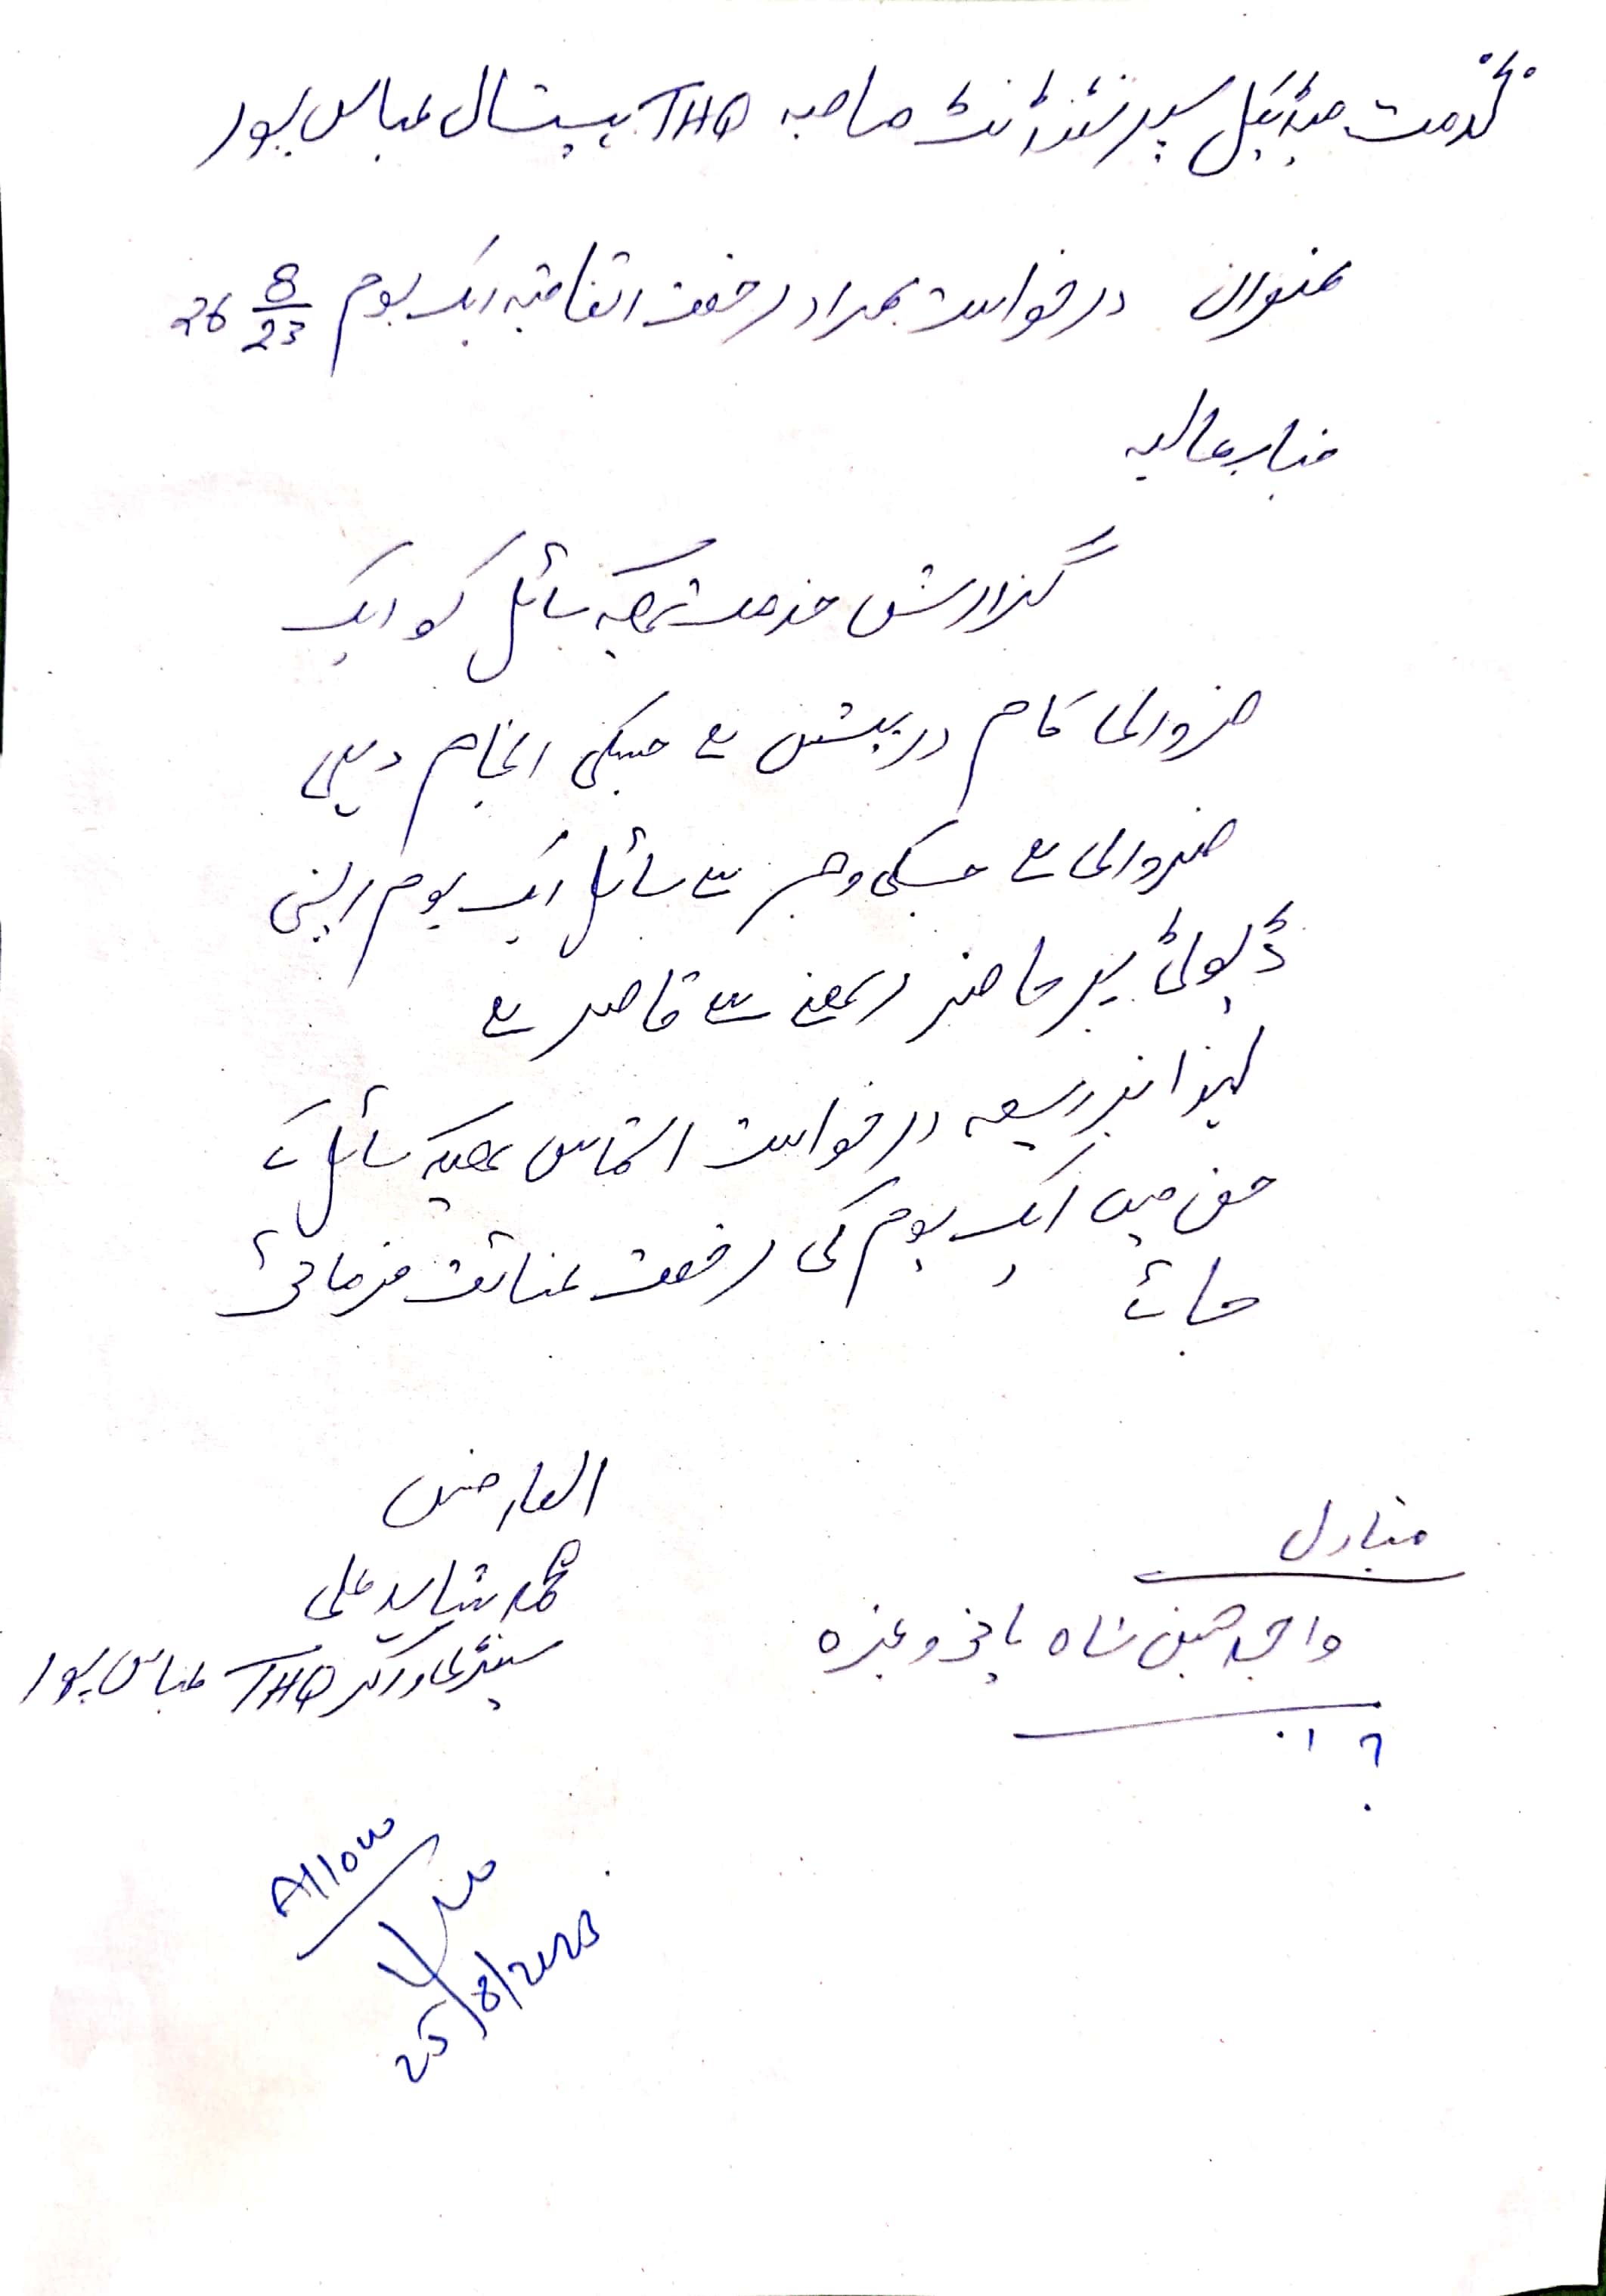 بخدمت میڈیکل سپرنٹنڈنٹ صاحبہ THQ ہسپتال عباس پور
عنوان درخواست بمراد رخصت اتفاقیہ ایک یوم 26 8/23
جناب عالیہ
گزارش خدمت ہیکہ سائل کو ایک
ضروری کام درپیش ہے جسکی انجام دہی
ضروری ہے جسکی وجہ سے سائل ایک یوم اپنی
ڈیوٹی پر حاضر رہنے سے قاصر ہے
لہذا بذریعہ درخواست التماس ہیکہ سائل کے
حق میں ایک یوم کی رخصت عنائت فرمائی
جائے
العارض
محمد شاہد علی
سینٹری ورکر THQ عباس پور
متبادل
واجد حسین شاہ وغیرہ
؟
Allow
25/8/2023